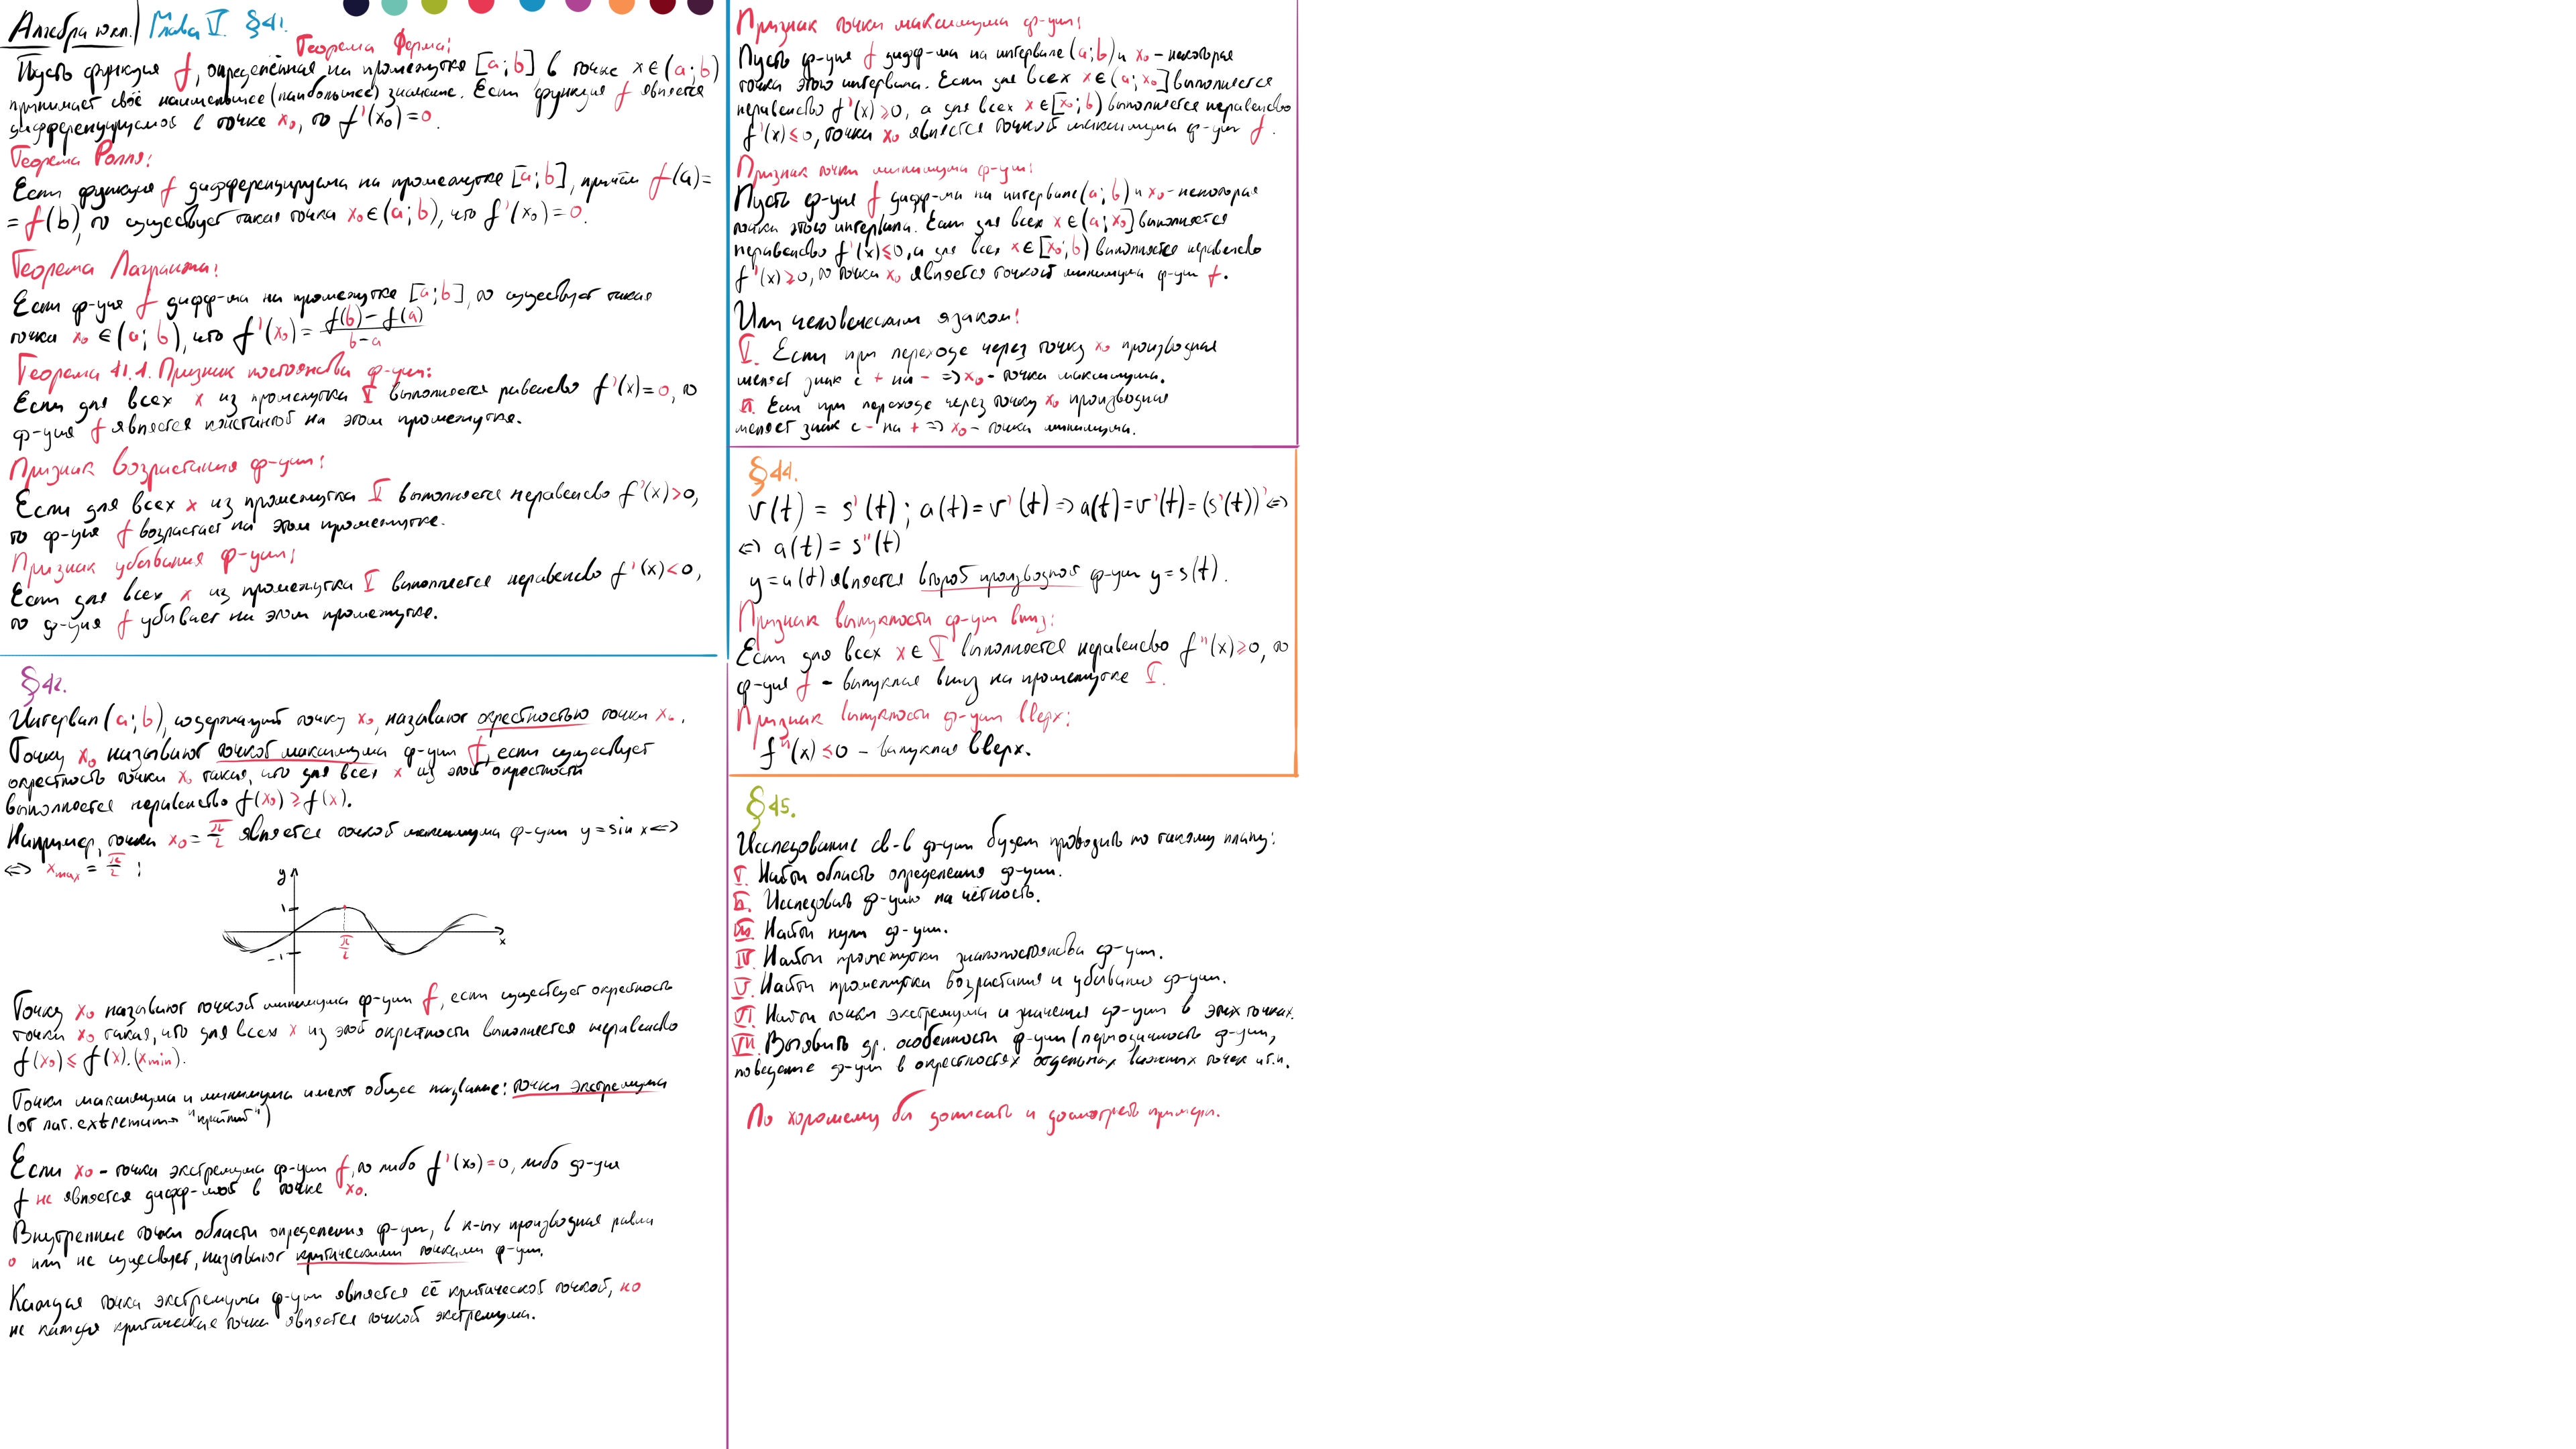 Алгебра 10 кл.) Глава V. §41.
Теорема Ферма:
Пусть функция f, определённая на промежутке [a; b] в точке x∈(a; b)
принимает своё наименьшее (наибольшее) значение. Если функция f является
дифференцируемой в точке x₀, то f'(x₀)=0.
Теорема Ролля:
Если функция f дифференцируема на промежутке [a; b], причём f(a)=
= f(b), то существует такая точка x₀∈(a; b), что f'(x₀)=0.
Теорема Лагранжа:
Если ф-ция f дифф-ма на промежутке [a; b], то существует такая
точка x₀ ∈(a; b), что f'(x₀)= (f(b)-f(a))/(b-a)
Теорема 41.1. Признак постоянства ф-ции:
Если для всех x из промежутка I выполняется равенство f'(x)=0, то
ф-ция f является константой на этом промежутке.
Признак возрастания ф-ции:
Если для всех x из промежутка I выполняется неравенство f'(x)>0,
то ф-ция f возрастает на этом промежутке.
Признак убывания ф-ции:
Если для всех x из промежутка I выполняется неравенство f'(x)<0,
то ф-ция f убывает на этом промежутке.
§42.
Интервал (a; b), содержащий точку x₀, называют окрестностью точки x₀.
Точку x₀ называют точкой максимума ф-ции f, если существует
окрестность точки x₀ такая, что для всех x из этой окрестности
выполняется неравенство f(x₀) ≥ f(x).
Например, точка x₀ = π/2 является точкой максимума ф-ции y = sin x <=>
<=> x max = π/2 ;
y
1
π/2
x
-1
Точку x₀ называют точкой минимума ф-ции f, если существует окрестность
точки x₀ такая, что для всех x из этой окрестности выполняется неравенство
f(x₀) ≤ f(x). (x min).
Точки максимума и минимума имеют общее название: точки экстремума
(от лат. extremum - "крайний")
Если x₀ - точка экстремума ф-ции f, то либо f'(x₀)=0, либо ф-ция
f не является дифф-мой в точке x₀.
Внутренние точки области определения ф-ции, в к-ых производная равна
0 или не существует, называют критическими точками ф-ции.
Каждая точка экстремума ф-ции является её критической точкой, но
не каждая критическая точка является точкой экстремума.
Признак точки максимума ф-ции:
Пусть ф-ция f дифф-ма на интервале (a; b) и x₀ - некоторая
точка этого интервала. Если для всех x∈(a; x₀] выполняется
неравенство f'(x) ≥0, а для всех x∈[x₀; b) выполняется неравенство
f'(x) ≤ 0, точка x₀ является точкой максимума ф-ции f.
Признак точки минимума ф-ции:
Пусть ф-ция f дифф-ма на интервале (a; b) и x₀ - некоторая
точка этого интервала. Если для всех x∈(a; x₀] выполняется
неравенство f'(x)≤0, а для всех x∈[x₀; b) выполняется неравенство
f'(x)≥0, то точка x₀ является точкой минимума ф-ции f.
Или человеческим языком:
I. Если при переходе через точку x₀ производная
меняет знак с + на - => x₀ - точка максимума.
II. Если при переходе через точку x₀ производная
меняет знак с - на + => x₀ - точка минимума.
§44.
v(t) = s'(t); a(t)=v'(t) => a(t)=v'(t)=(s'(t))' <=>
<=> a(t) = s''(t)
y=a(t) является второй производной ф-ции y=s(t).
Признак выпуклости ф-ции вниз:
Если для всех x∈I выполняется неравенство f''(x)≥0, то
ф-ция f - выпуклая вниз на промежутке I.
Признак выпуклости ф-ции вверх:
f''(x) ≤0 - выпуклая вверх.
§45.
Исследование св-в ф-ции будем проводить по такому плану:
I. Найти область определения ф-ции.
II. Исследовать ф-цию на чётность.
III. Найти нули ф-ции.
IV. Найти промежутки знакопостоянства ф-ции.
V. Найти промежутки возрастания и убывания ф-ции.
VI. Найти точки экстремума и значения ф-ции в этих точках.
VII. Выявить др. особенности ф-ции (периодичность ф-ции,
поведение ф-ции в окрестностях отдельных важных точек и т.п.
По хорошему бы дописать и досмотреть примеры.